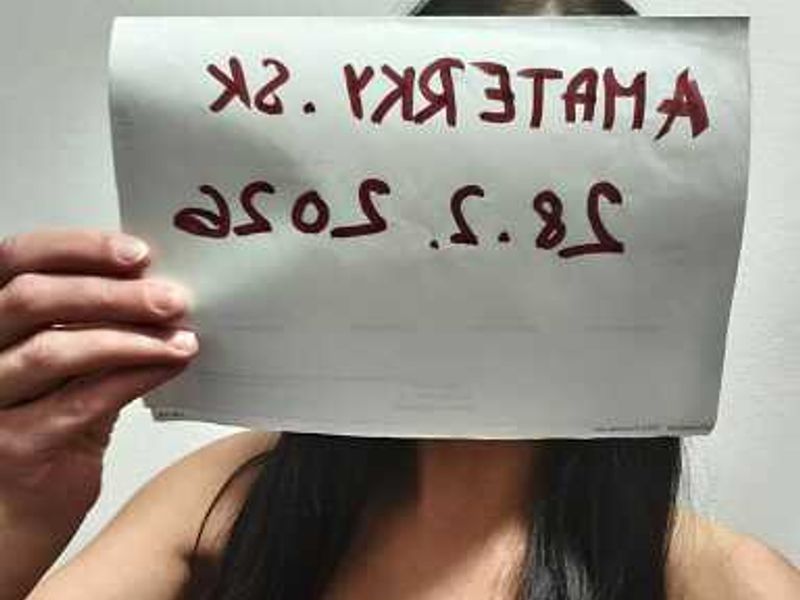 AMATERKY.SK
28.2.2026